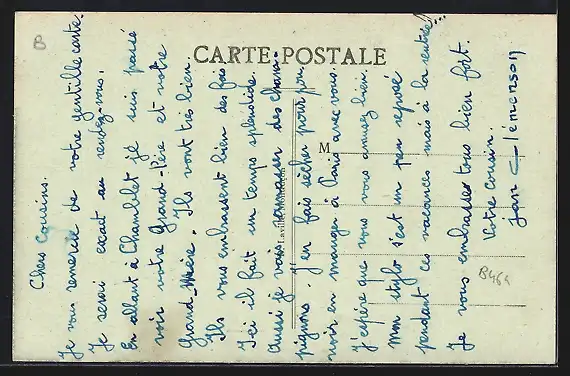 CARTE POSTALE
M
Laville, Montluçon
B464
Chers Cousins.
Je vous remercie de votre gentille carte.
Je serai exact au rendez-vous.
En allant à Chamblet je suis passé
voir votre Grand-Père et votre
Grand-Mère. Ils vont très bien.
Ils vous embrassent bien des fois
Ici il fait un temps splendide.
Aussi je vais ramasser des champi-
pignons. J'en fais sécher pour pou
voir en manger à Paris avec vous.
J'espère que vous vous amusez bien.
Mon stylo s'est un peu reposé
pendant ces vacances mais à la rentrée!...
Je vous embrasse tous bien fort.
Votre cousin.
Jean Clémenson